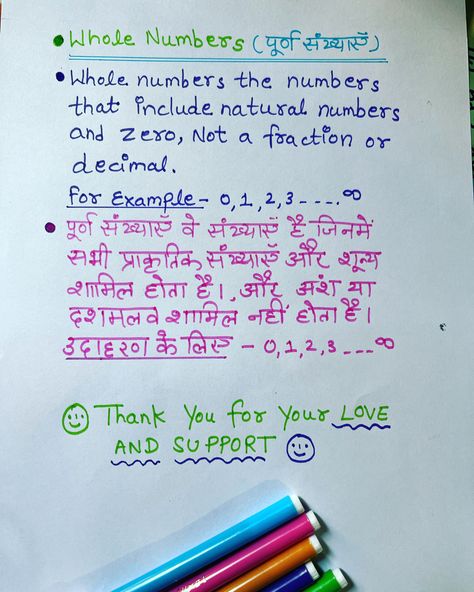 • Whole Numbers (पूर्ण संख्याएँ)
• Whole numbers the numbers
that include natural numbers
and zero, Not a fraction or
decimal.
For Example - 0, 1, 2, 3 - - - . ∞
• पूर्ण संख्याएँ वे संख्याएँ है जिनमें
सभी प्राकृतिक संख्याएँ और शून्य
शामिल होता है। और अंश या
दशमलव शामिल नहीं होता है।
उदाहरण के लिए - 0, 1, 2, 3 - - - ∞
Thank You for Your LOVE
AND SUPPORT